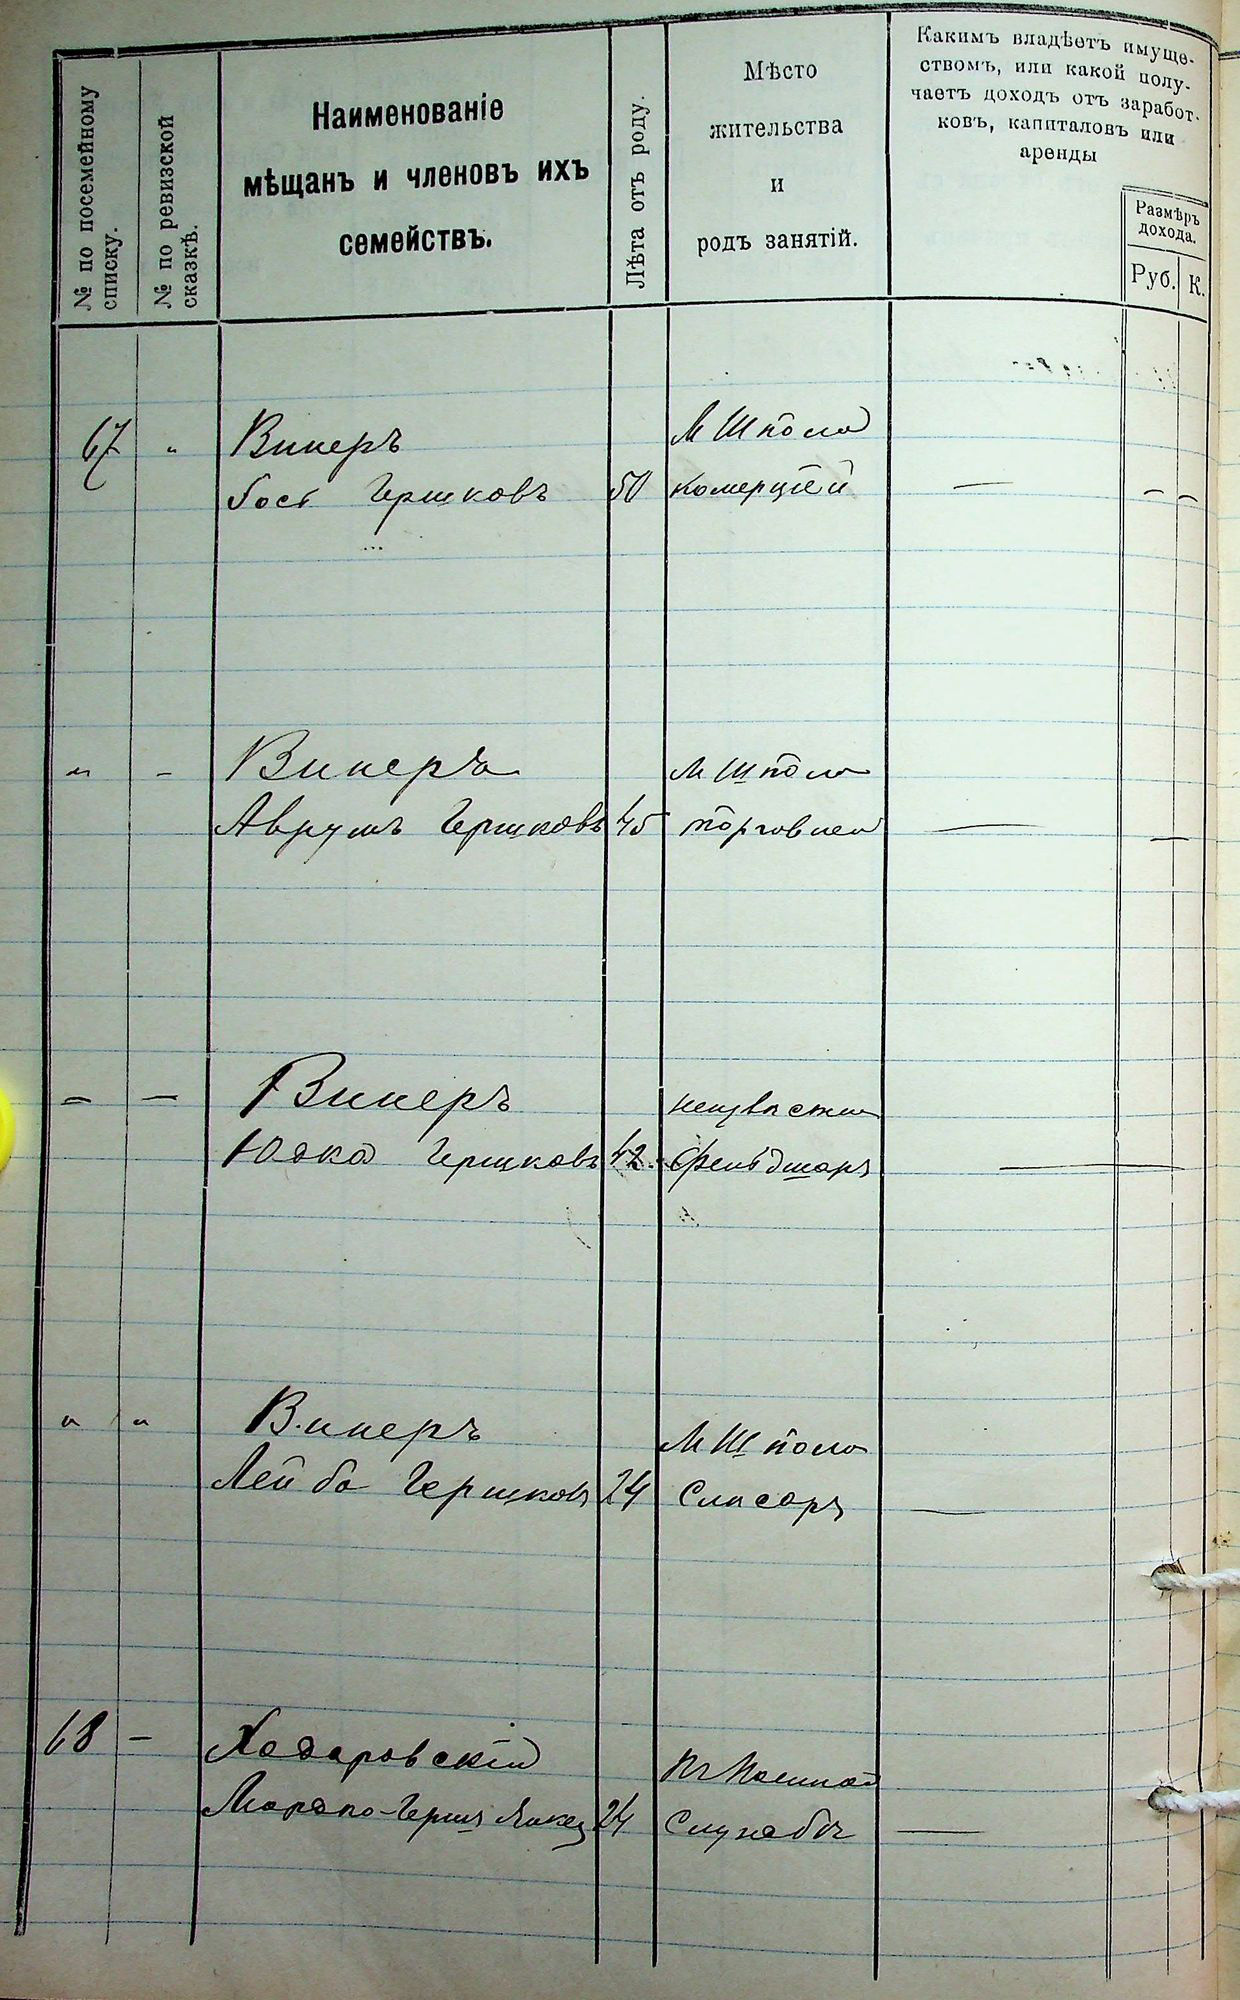 № по посемейному
списку.
№ по ревизской
сказкѣ.
Наименованіе
мѣщанъ и членовъ ихъ
семействъ.
Лѣта отъ роду.
Мѣсто
жительства
и
родъ занятій.
Какимъ владѣетъ имуще-
ствомъ, или какой полу-
чаетъ доходъ отъ заработ-
ковъ, капиталовъ или
аренды
Размѣръ
дохода.
Руб. К.
67 " Винеръ М Шпола
Гершковъ 50 комерціей — — —
" - Винеръ М Шпола
Аврумъ Гершковъ 45 торговлей — —
— — Винеръ
Юдка Гершковъ 42 фельдшеръ —
" " Винеръ М Шпола
Лейба Гершковъ 24 Слесаръ —
68 - Ходаровскій
Мордко-Герш 24 Службѣ —